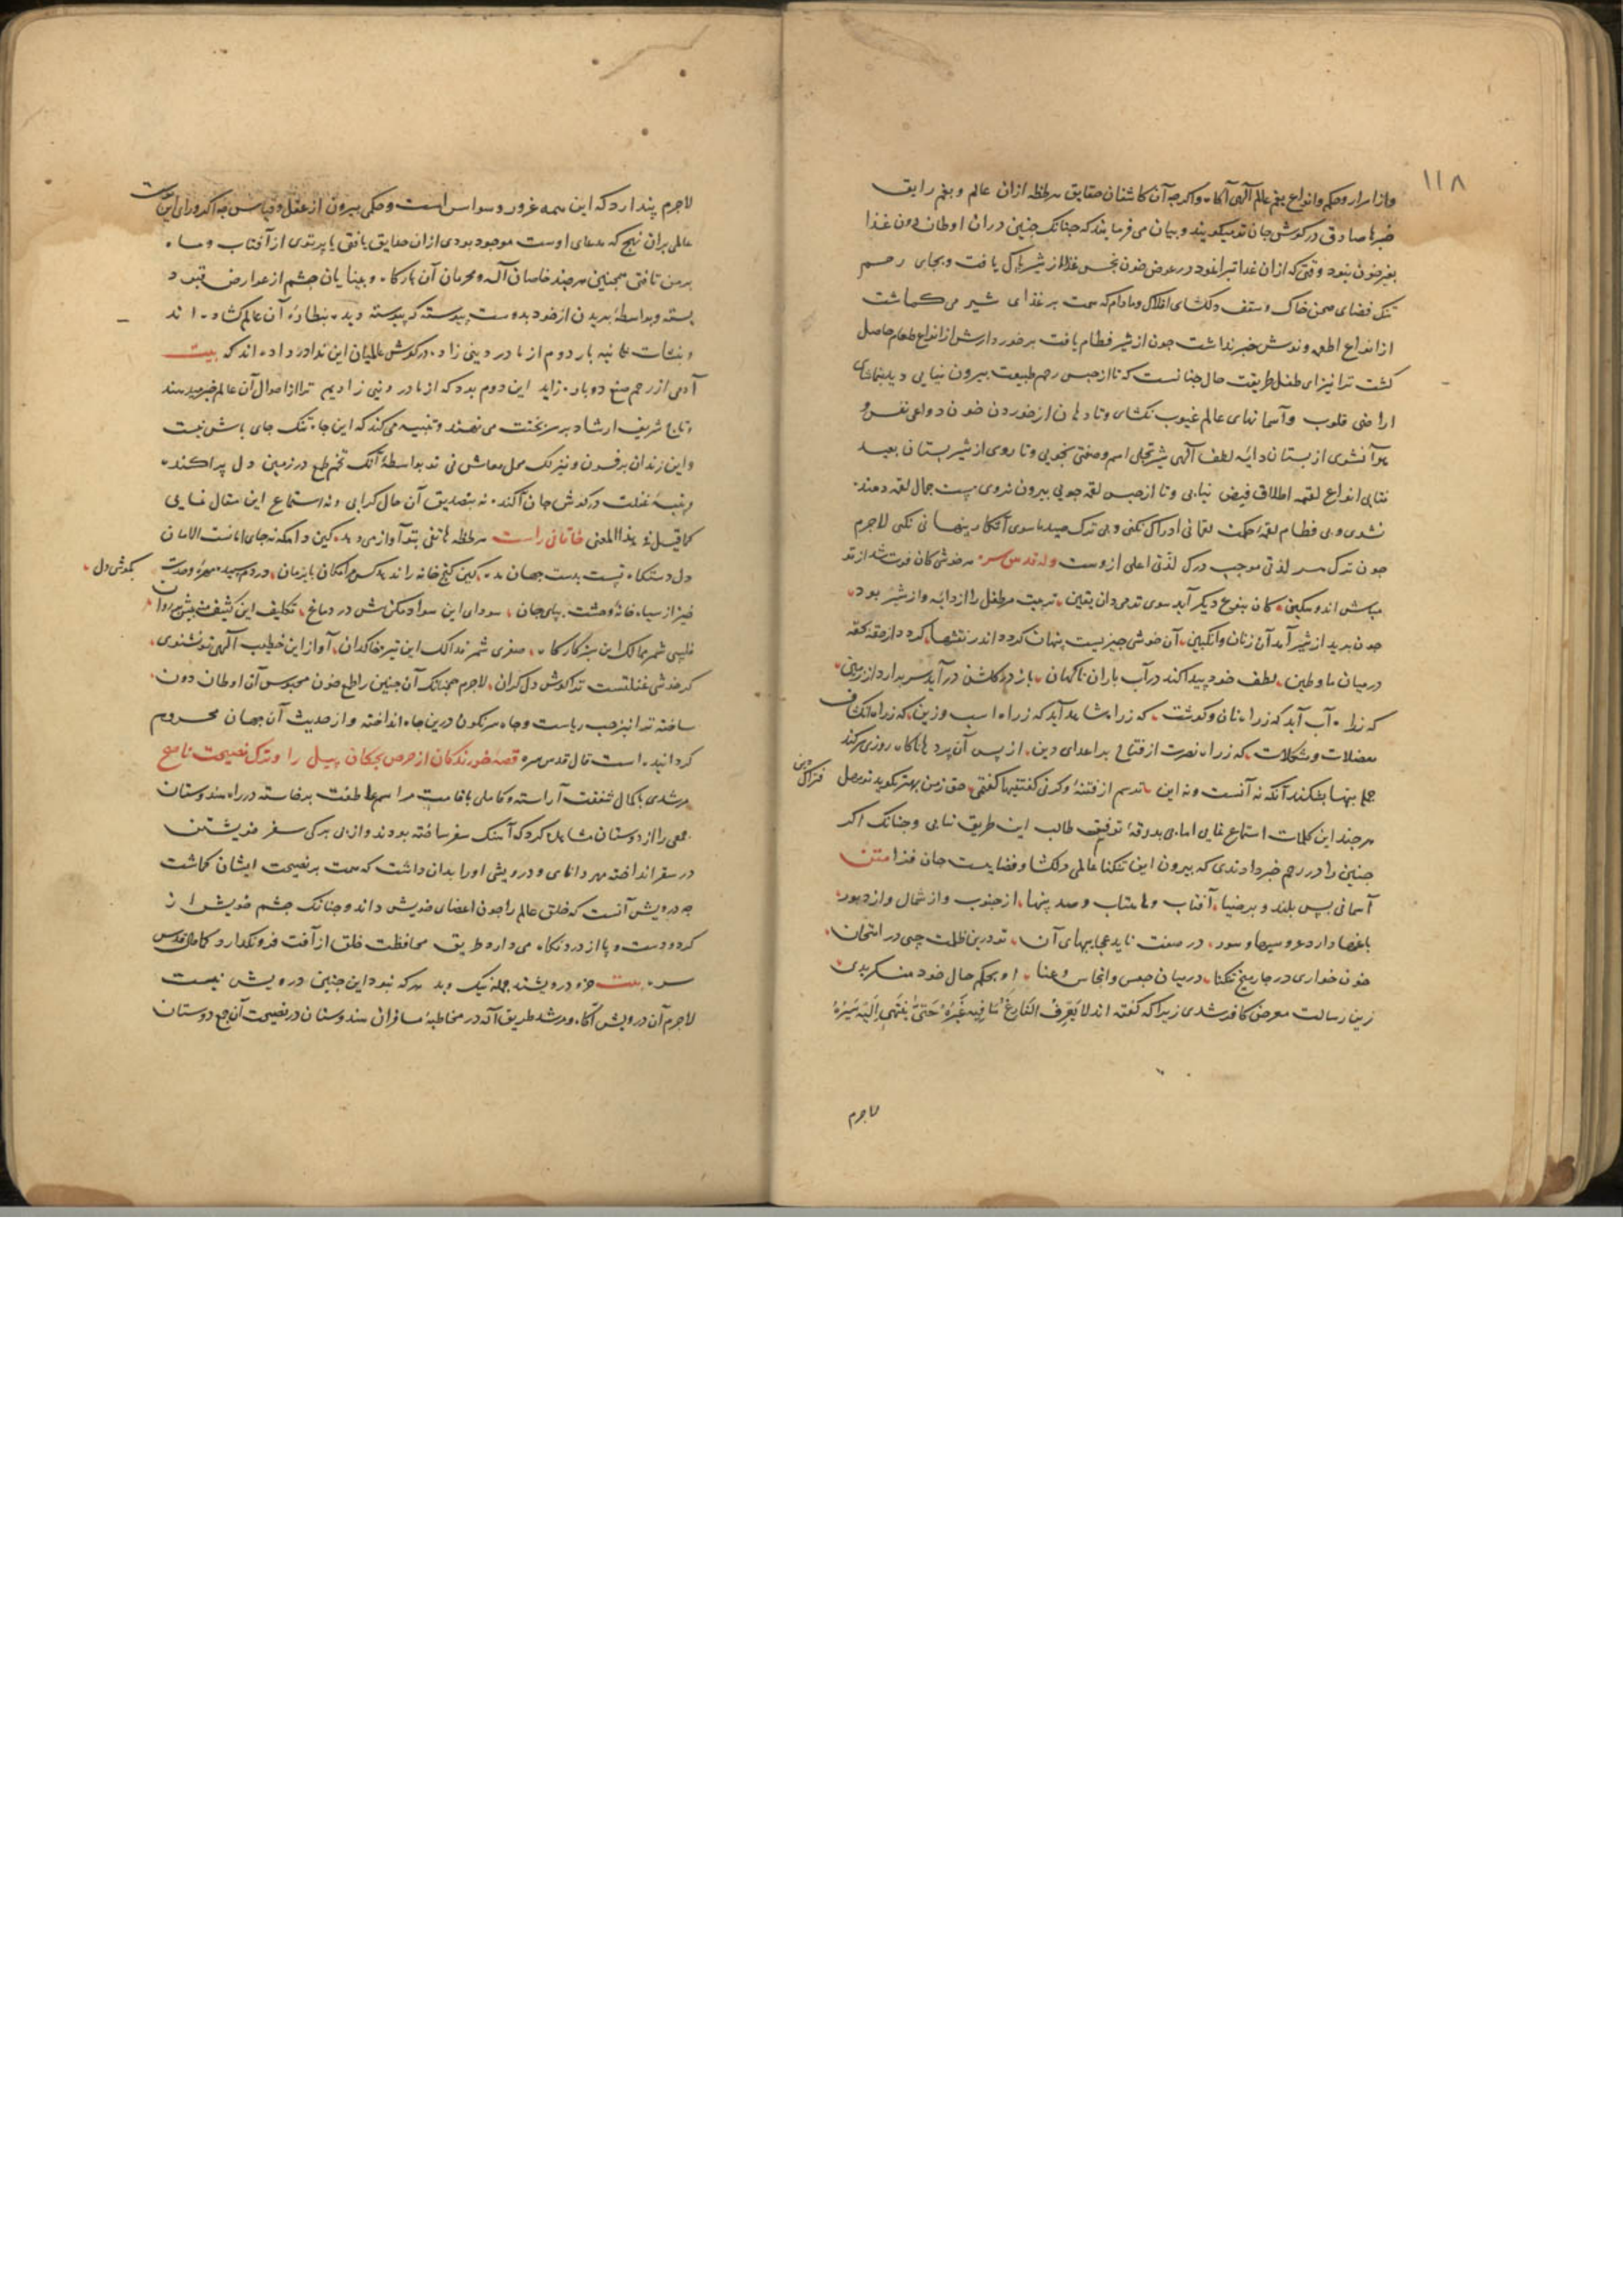 ١١٨
واز اسرار و حکم و انواع نعم عالم الهی آگاه و اگرچه آن کاشفان حقایق هر لحظه ازان عالم و نعم رایق
خبرها صادق در گوش جان تو میگویند و بیان می فرمایند که چنانک جنین دران اوطان دون غذا
بغیر خون نبود وقتی که ازان غذا تبرا نمود در عوض خون نجس غذا از شیر پاک یافت و بجای رحم
تنک فضای صحن خاک و سقف دلکشای افلاک و مادام که همت بر غذای شیر می گماشت
از انواع اطعمه و نوش خبر نداشت چون از شیر فطام یافت برخوردارش از انواع طعام حاصل
گشت ترا نیز ای طفل طریقت حال چنانست که تا از حبس رحم طبیعت بیرون نیایی دیده بتماشای
اراضی قلوب و آسمانهای عالم غیوب نکشای و تا دهان از خوردن خون دواعی نفس و
هوا نشوی از پستان دایه لطف الهی شیر تجلی اسم و صفتی نجویی و تا روی از شیر پستان بعید
نتابی انواع لقمه اطلاق فیض نیابی و تا از حبس لقمه جویی بیرون نروی مست جمال لقمه دهنده
نشوی و بی فطام لقمه حکمت لقمانی ادراک نکنی و بی ترک صید ماسوی آشکار پنهانی نکنی لاجرم
چون ترک هر لذتی موجب درک لذتی اعلی ازوست وله قدس سره هر خوشی کان فوت شد از تو
مباش اندوهگین کان بنوع دیگر آید سوی تو می دان یقین تربیت مر طفل را از دایه و از شیر بود
چون برید از شیر آمد آن زنان و انگبین آن خوشی چیزیست پنهان کرده اندر نقشها گردد از حقه بحقه
در میان ما و طین لطف خود پیدا کند در آب باران ناگهان باز در گلشن در آید سر بر آرد از زمین
که ز راه آب آید که ز راه نان و گوشت که ز راه شاهد آید که ز راه اسب و زین که ز راه انکشاف
معضلات و مشکلات که ز راه نصرت از فتاح بر اعدای دین از پس آن پرده ها ناگاه روزی سر کند
جمله بتها بشکند آنکه نه آنست و نه این ترسم از فتنه و گرنی گفتنیها گفتمی حق ز من بهتر بگوید تو مهل فتراک دین
هر چند این کلمات استماع نمایی اما بی بدرقه توفیق طالب این طریق نیایی و چنانک اگر
جنین را در رحم خبر دادندی که بیرون این تنکنا عالمی دلکشا و فضاییست جان فزا متن
آسمانی بس بلند و پر ضیا آفتاب و ماهتاب و صد سها از جنوب و از شمال و از دبور
باغها دارد عروسیها و سور در صفت ناید عجایبهای آن تو درین ظلمت چی در امتحان
خون خواری در چار میخ تنکنا در میان حبس و انجاس و عنا او بحکم حال خود منکر بدی
زین رسالت معرض کافر شدی زیرا که گفته اند لا یعرف
لاجرم
لاجرم پندارد که این همه غرور و سواس است و حکمی بیرون از عقل و قیاس چه اگر ورای این
عالمی بران نهج که مدعای اوست موجود بودی ازان حقایق یافتی یا پرتوی از آفتاب و ماه
بر من تافتی همچنین هر چند خاصان آله و محرمان آن بارگاه و بینایان چشم از عوارض قیود
بسته و بواسطه بریدن از خود بدوست پیوسته که پیوسته دیده بنظاره آن عالم گشاده اند
و بنشات ثانیه بار دوم از مادر دینی زاده در گوش عالمیان این ندا در داده اند که بیت
آدمی از رحم صنع دوباره زاید این دوم بود که از مادر دینی زادیم ترا از احوال آن عالم خبر میدهند
و تاج شریف ارشاد بر سر بختت می نهند و تنبیه می کند که این چاه تنک جای باش نیست
و این زندان پر فسون و نیرنک محل معاش نی تو بواسطه آنک تخم طمع در زمین دل پراکنده
و پنبه غفلت در گوش جان آگنده نه بتصدیق آن حال گرایی و نه استماع این مقال نمایی
کما قیل فی هذا المعنی خاقانی راست هر لحظه هاتفی بتو آواز می دهد کین دامگه نه جای امانست الامان
دل دستگاه تست بدست جهان مده کین گنج خانه را ندهد کس برایگان بایزمان در دم سپید مهره وحدت بگوش دل
خیز از سیاه خانه وحشت بپای جان سودای این سواد مکن بیش در دماغ تکلیف این کثیف منه بیش بر روان
فلسی شمر ممالک این سبز کارگاه صفری شمر فذالک این تیره خاکدان آواز این خطیب الهی تو نشنوی
کز خوشی غفلتست ترا گوش دل گران لاجرم همچنانک آن جنین را طمع خون محبوس آن اوطان دون
ساخته ترا نیز حب ریاست و جاه سرنگون درین چاه انداخته و از حدیث آن جهان محروم
گردانیده است قال قدس سره قصه خورندگان از حرص بچکان پیل را و ترک نصیحت ناصح
مرشدی بکمال شفقت آراسته و کاملی باقامت مراسم عاطفت برخاسته در راه هندوستان
جمعی را از دوستان مشاهده کرد که آهنک سفر ساخته بودند و از بی برگی سفر خویشتن
در سقر انداخته مهر دانای و درویشی او را بدان داشت که همت بر نصیحت ایشان گماشت
چه درویش آنست که خلق عالم را چون اعضای خویش داند و چنانک چشم خویش از
گرد و دست و پا از درد نگاه می دارد طریق محافظت خلق از آفت فرونگذارد کما قال قدس
سره بیت جزو درویشند جمله نیک و بد هر که نبود این چنین درویش نیست
لاجرم آن درویش آگاه و مرشد طریق اله در مخاطبه مسافران هندوستان در نصیحت آن جمع دوستان